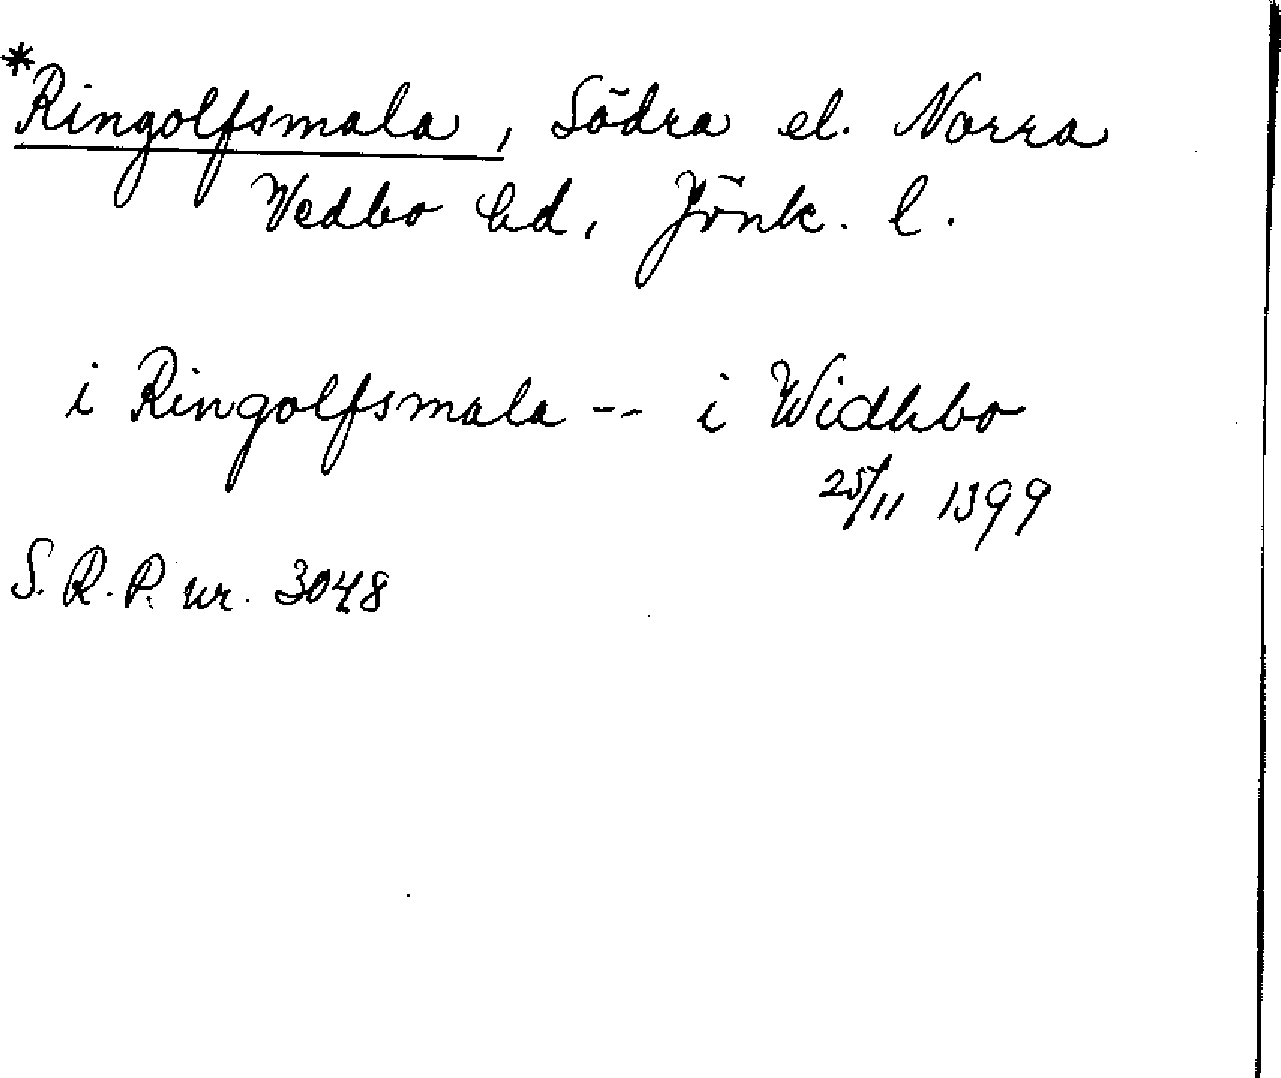 *Ringolfsmala, Södra el. Norra
Vedbo hd, Jönk. l.
i Ringolfsmala -- i Widhbo
25/11 1399
S.R.P. nr. 3048